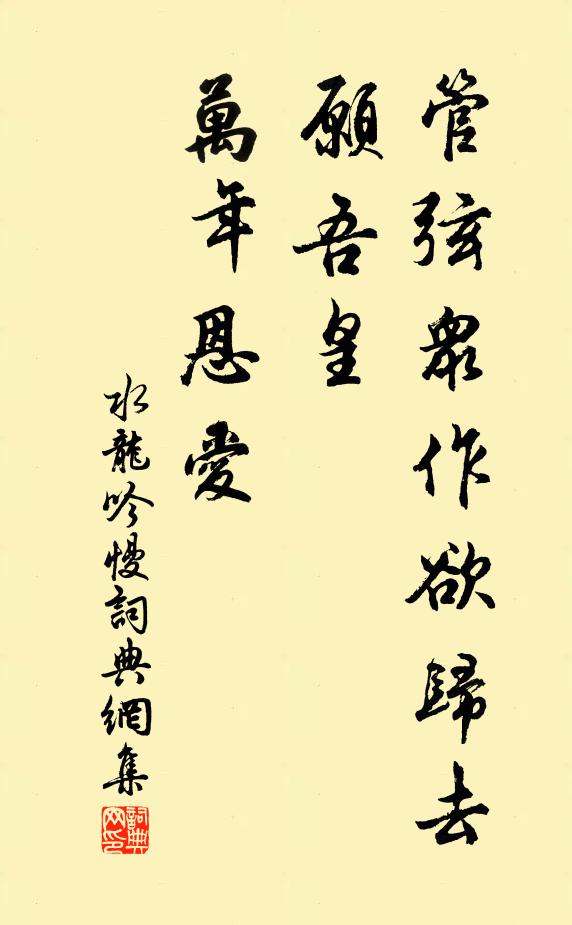 管弦衆作欲歸去
願吾皇
萬年恩愛
水龍吟慢詞典網集
詞典网印